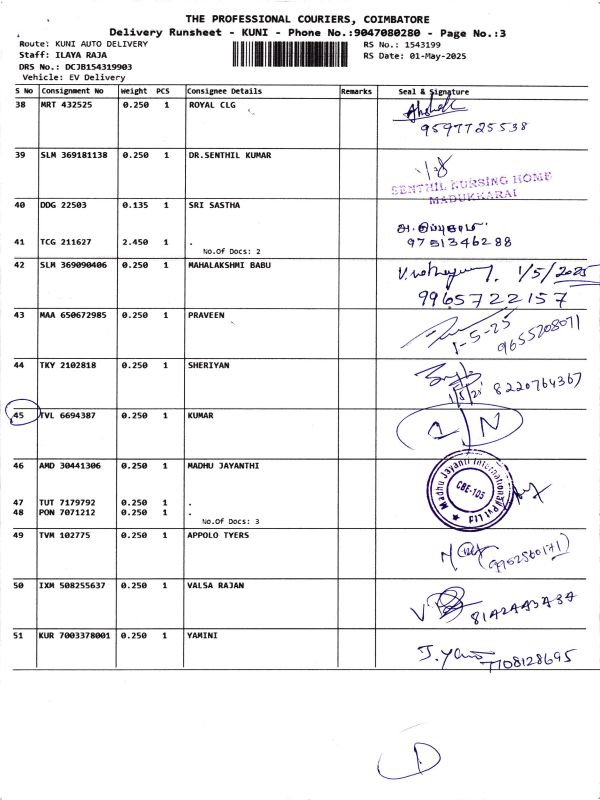 THE PROFESSIONAL COURIERS, COIMBATORE
Delivery Runsheet - KUNI - Phone No.:9047080280 - Page No.:3
Route: KUNI AUTO DELIVERY
RS No.: 1543199
Staff: ILAYA RAJA
RS Date: 01-May-2025
DRS No.: DCJB154319903
Vehicle: EV Delivery
S No Consignment No Weight PCS Consignee Details Remarks Seal & Signature
38 MRT 432525 0.250 1 ROYAL CLG
9597725538
39 SLM 369181138 0.250 1 DR.SENTHIL KUMAR
SENTHIL NURSING HOME
MADUKKARAI
40 DDG 22503 0.135 1 SRI SASTHA
41 TCG 211627 2.450 1 . 9751346288
No.Of Docs: 2
42 SLM 369090406 0.250 1 MAHALAKSHMI BABU 1/5/2025
9965722157
43 MAA 650672985 0.250 1 PRAVEEN
1-5-25 9655208071
44 TKY 2102818 0.250 1 SHERIYAN
1/5/25 8220764367
45 TVL 6694387 0.250 1 KUMAR
46 AMD 30441306 0.250 1 MADHU JAYANTHI
Madhu Jayanti International Pvt Ltd
CBE-105
47 TUT 7179792 0.250 1 .
48 PON 7071212 0.250 1 .
No.Of Docs: 3
49 TVM 102775 0.250 1 APPOLO TYERS
50 IXM 508255637 0.250 1 VALSA RAJAN
51 KUR 7003378001 0.250 1 YAMINI
7708128695